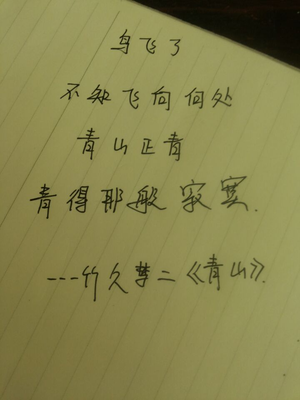 鸟飞了
不知飞向何处
青山正青
青得那般寂寞.
---竹久梦二《青山》.